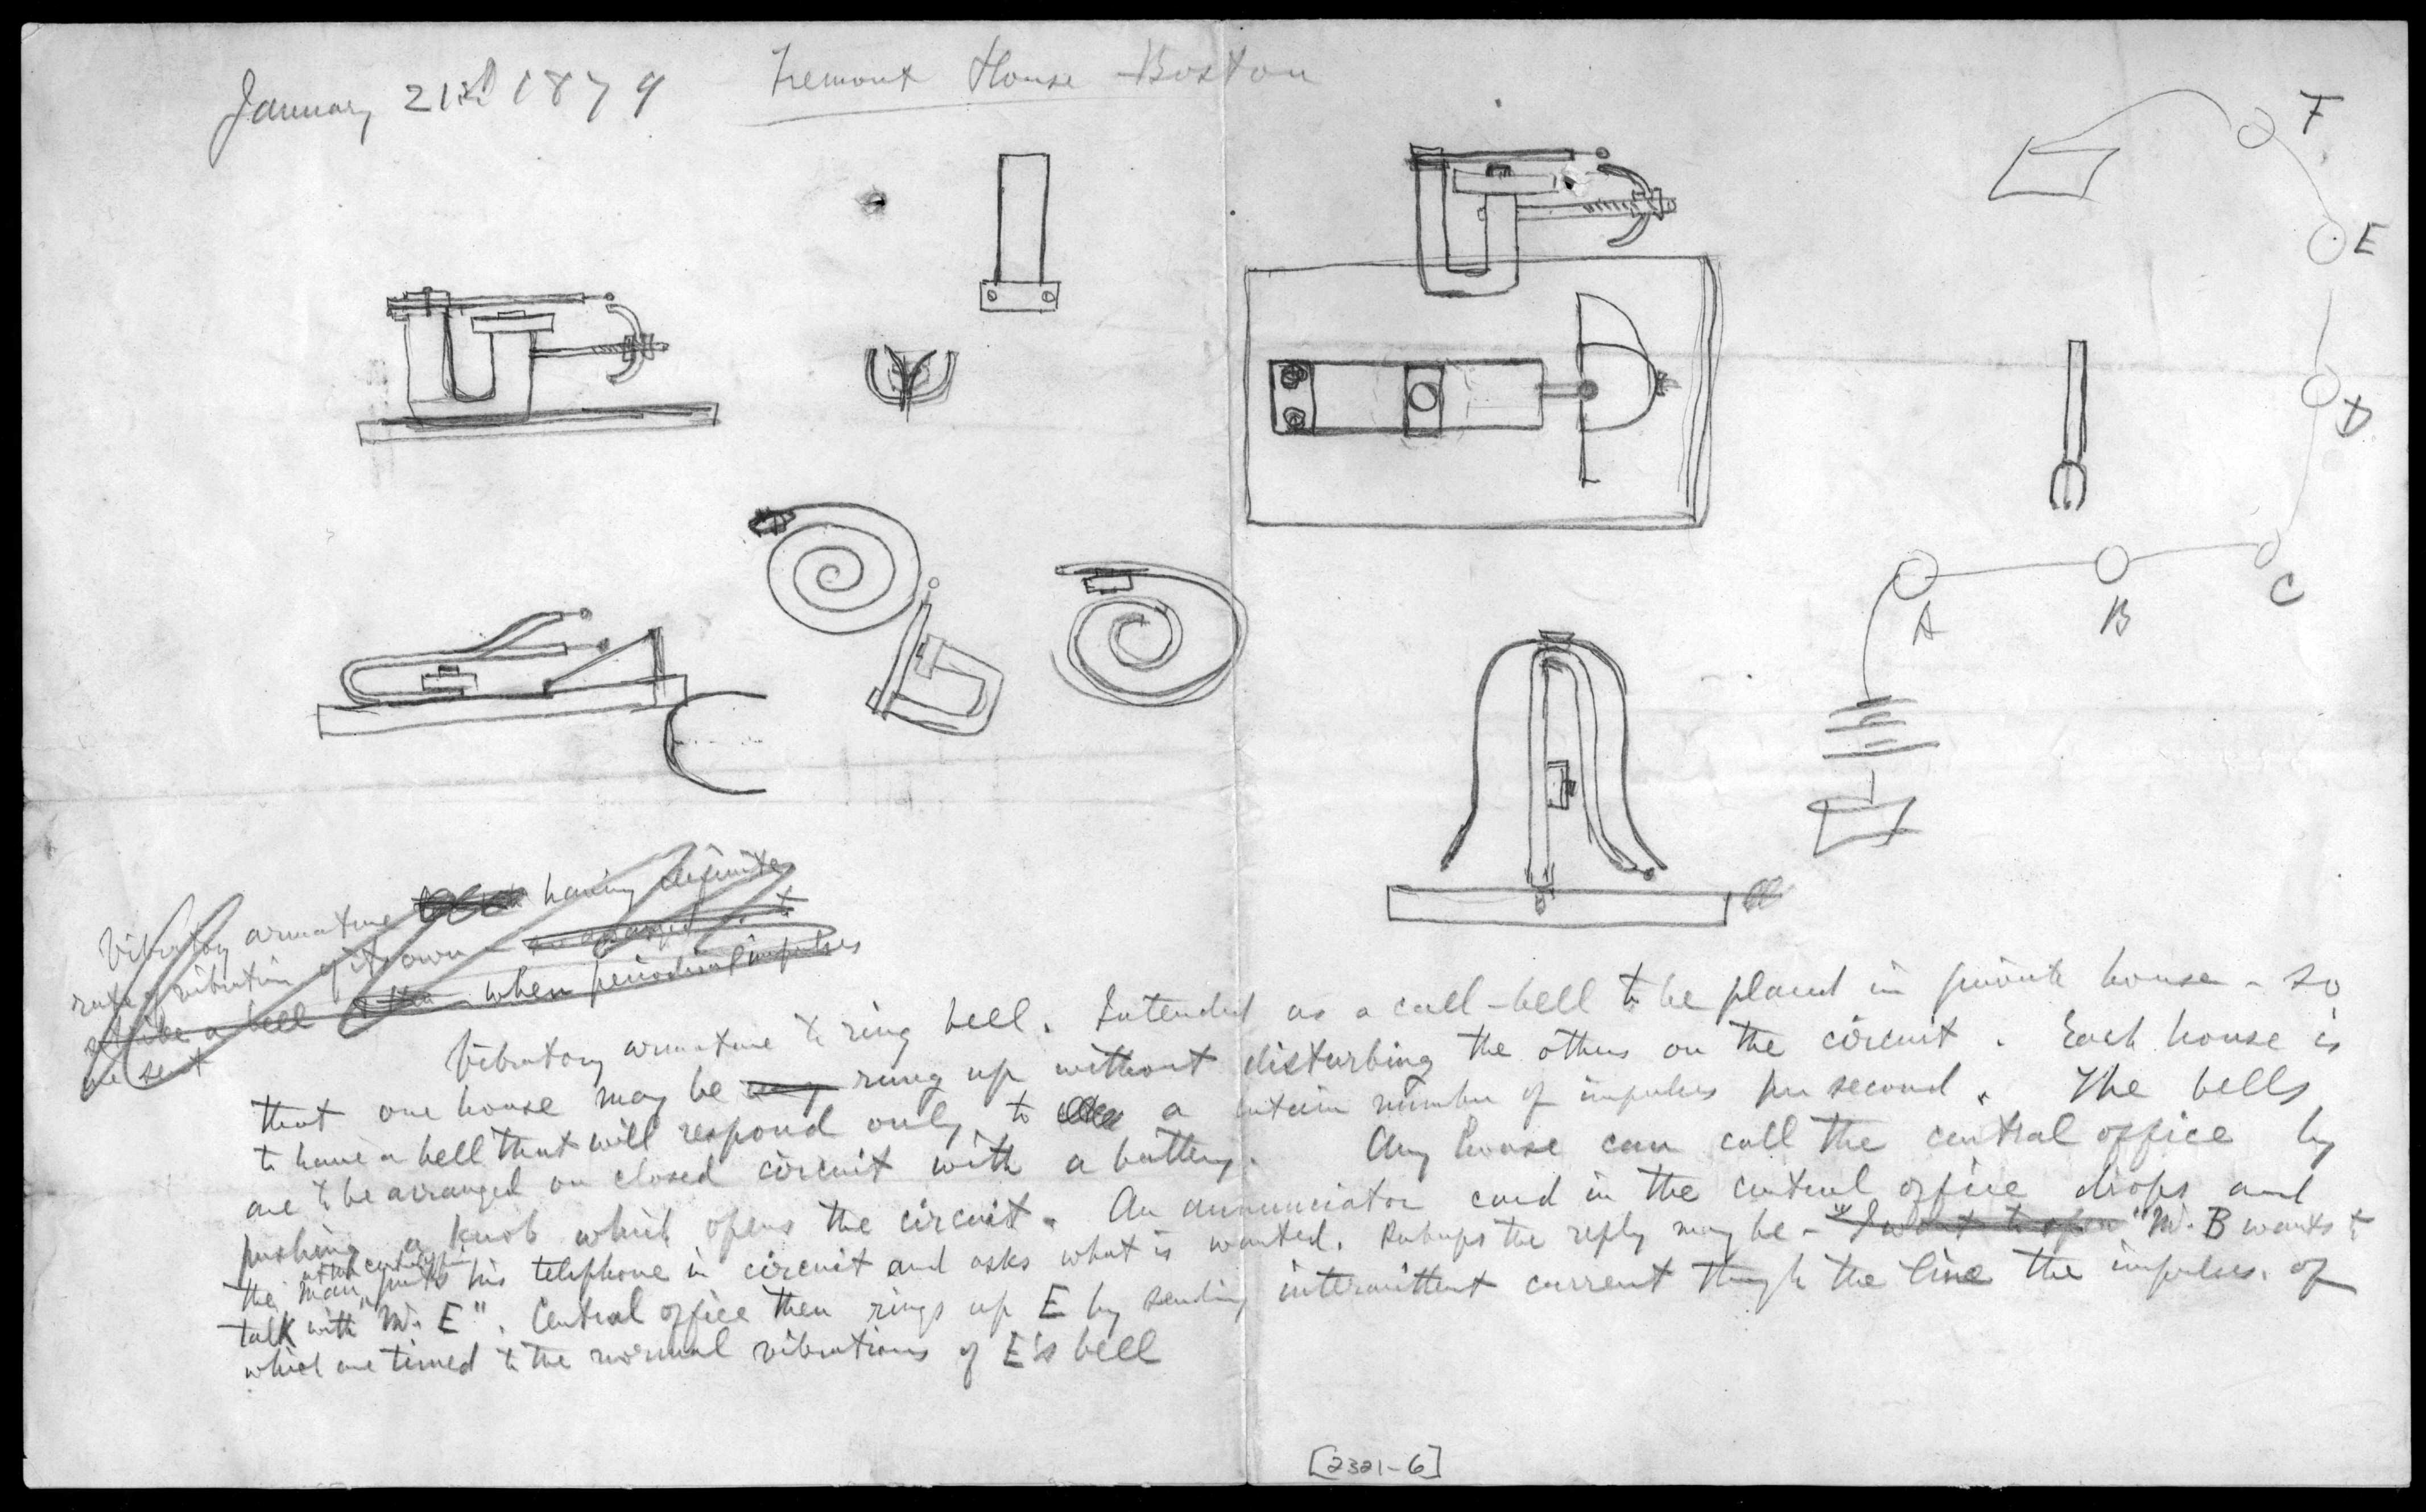 January 21st 1879
Tremont House Boston
F
E
D
C
A
B
Vibratory armature having definite
rate of vibration of its own
strike a bell when periodical impulses
be sent
Vibratory armature to ring bell. Intended as a call-bell to be placed in private house - so
that one house may be rung up without disturbing the others on the circuit. Each house is
to have a bell that will respond only to a certain number of impulses per second. The bells
are to be arranged on closed circuit with a battery. Any house can call the central office by
pushing a knob which opens the circuit. An annunciator card in the central office drops and
the man at the central office puts his telephone in circuit and asks what is wanted. Perhaps the reply may be - "I want to "Mr. B wants to
talk with Mr. E". Central office then rings up E by sending intermittent current through the line the impulses of
which are timed to the normal vibrations of E's bell
[2321-6]